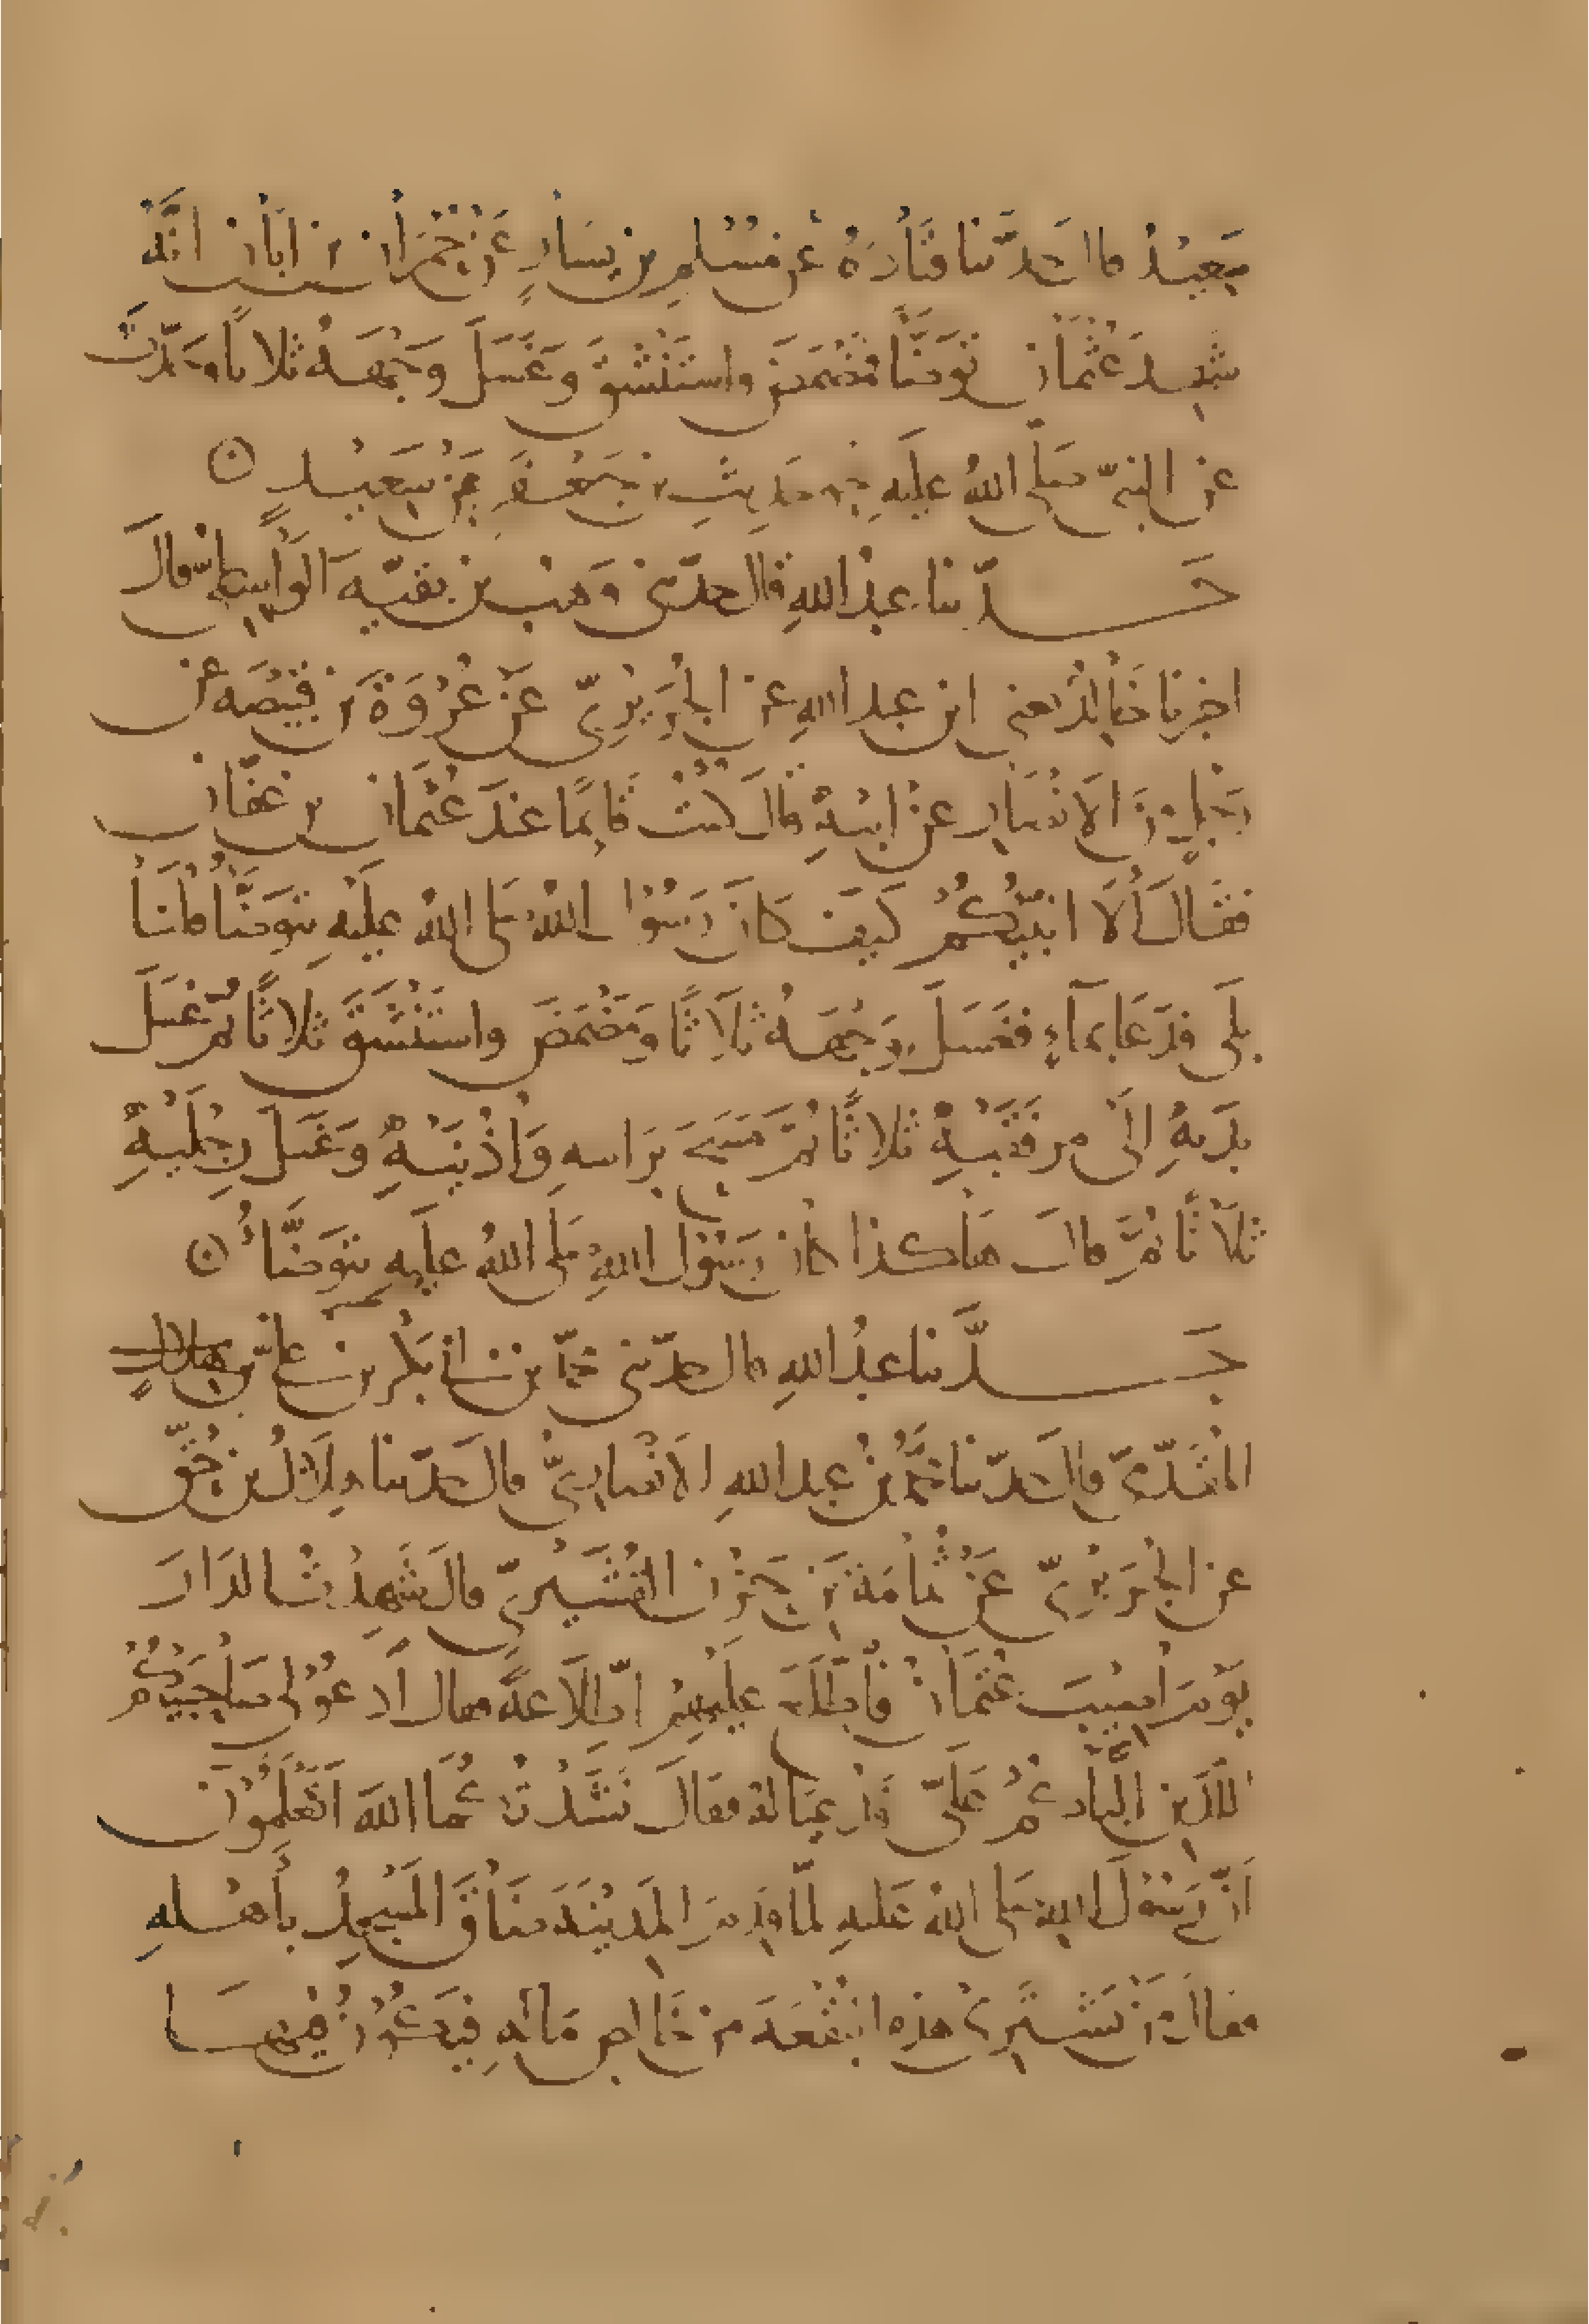 سَعِيدٌ قال حَدَّثنا قَتَادَةُ عن مُسْلِمِ بن يَسَارٍ عَنْ حُمْرَانَ بن اَبَانَ انَّهُ
شَهِدَ عُثْمَانَ تَوَضَّأ فمَضْمَضَ واسْتَنْشَقَ وَغَسَلَ وَجْهَهُ ثلاثًا وحَدَّثَ
عن النبىّ صَلى اللهُ عليَهِ حديثِ بن جَعْفَرٍ عَنْ سَعِيدٍ
حَــدّثنا عبدُ اللهِ قال حدّثنى وَهْبُ بن بَقيّه الوَاسِطىّ قالَ
اخبرنا خَالِدٌ يعنى ابن عبدِ اللهِ عن الجُرَيْرِىّ عَنْ عُرْوَةَ بن قَبيْصَه عن
رَجُلٍ مِنَ الاَنْصَارِ عَنْ ابيْهِ قالَ كنتُ قَائِمًا عندَ عُثْمَانَ بن عَفّانَ
فقَالَ أَلاَ انَبّئُكُمْ كَيفَ كَانَ رَسُوْلُ اللهِ صَلى اللهُ عليَهِ يتَوَضَّأُ قُلْنَا
بلَى فدَعَا بمآءٍ فغَسَلَ وَجْهَهُ ثلَاثًا وَمَضْمَضَ واسْتَنْشَقَ ثلاثًا ثُم غسَلَ
يدَيهِ الَى مرفقَيْهِ ثلاثًا ثُمَّ مَسَحَ برَاسهِ وَاُذْنيَْهِ وَغَسَلَ رِجْلَيْهِ
ثلَاثًا ثُمَّ قالَ هَاكذا كانَ رَسُوْل اللهِ صَلى اللهُ عليَهِ يتوَضَّأُ
حَــدَّثنا عبدُ اللهِ قال حدّثنى محمّد بن ابى بَكْر بن علىّ
المُقَدّمىّ قالَ حَدّثنا مُحمَّدُ بن عبد اللهِ الاَنْصَارِىُّ قال حَدّثنا هِلَالُ بن حِقٍّ
عن الجُرَيْرِىّ عَنْ ثُمَامَةَ بن حَزْنٍ القُشَيْرِىّ قالَ شَهِدْتُ الدَارَ
يَوْمَ اُصِيْبَ عُثْمَانُ فَاطَّلَعَ عليَْهِمْ اطّلاَعةً فقال اَدْعُوْا لى صَاحِبَيْكُمْ
اللَّذَيْنِ البَّاكُمْ عَلَىّ فَدُعِيَا لهُ فقالَ نَشَدْتُكُمَا اللهَ اَتَعْلَمُوْنَ
اَنّ رَسُوْلَ اللهِ صَلى اللهُ عَليهِ لمّا قدِمَ المَديْنَةَ ضَاقَ المَسْجِدُ بأَهْلهِ
فقالَ مَنْ يَشْتَرِى هذِه البُقْعَةَ من خَالِصِ مَالهِ فيَكُوْنُ فيهَا